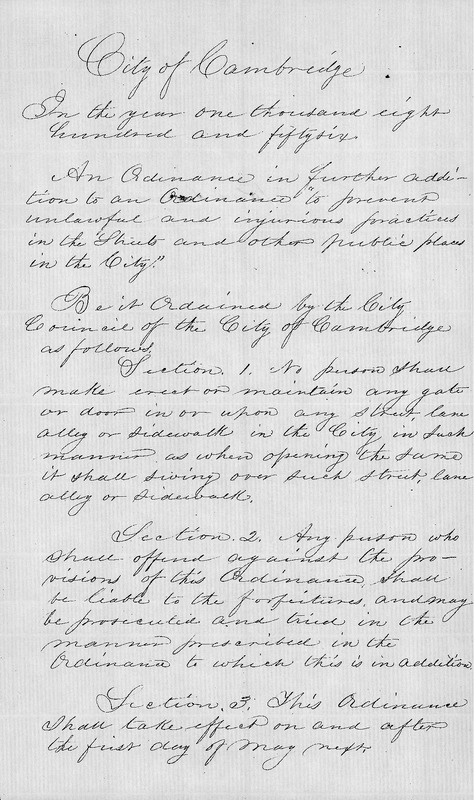 City of Cambridge
In the year one thousand eight
hundred and fiftysix.
An Ordinance in further addi-
tion to an Ordinance "to prevent
unlawful and injurious practices
in the Streets and other public places
in the City."
Be it Ordained by the City
Council of the City of Cambridge
as follows.
Section. 1. No person shall
make erect or maintain any gate
or door in or upon any street, lane
alley or sidewalk in the City, in such
manner as when opening the same
it shall swing over such street, lane
alley or sidewalk.
Section. 2. Any person who
shall offend against the pro-
visions of this Ordinance, shall
be liable to the forfeitures, and may
be prosecuted and tried in the
manner prescribed in the
Ordinance to which this is in addition.
Section. 3. This Ordinance
shall take effect on and after
the first day of May next.